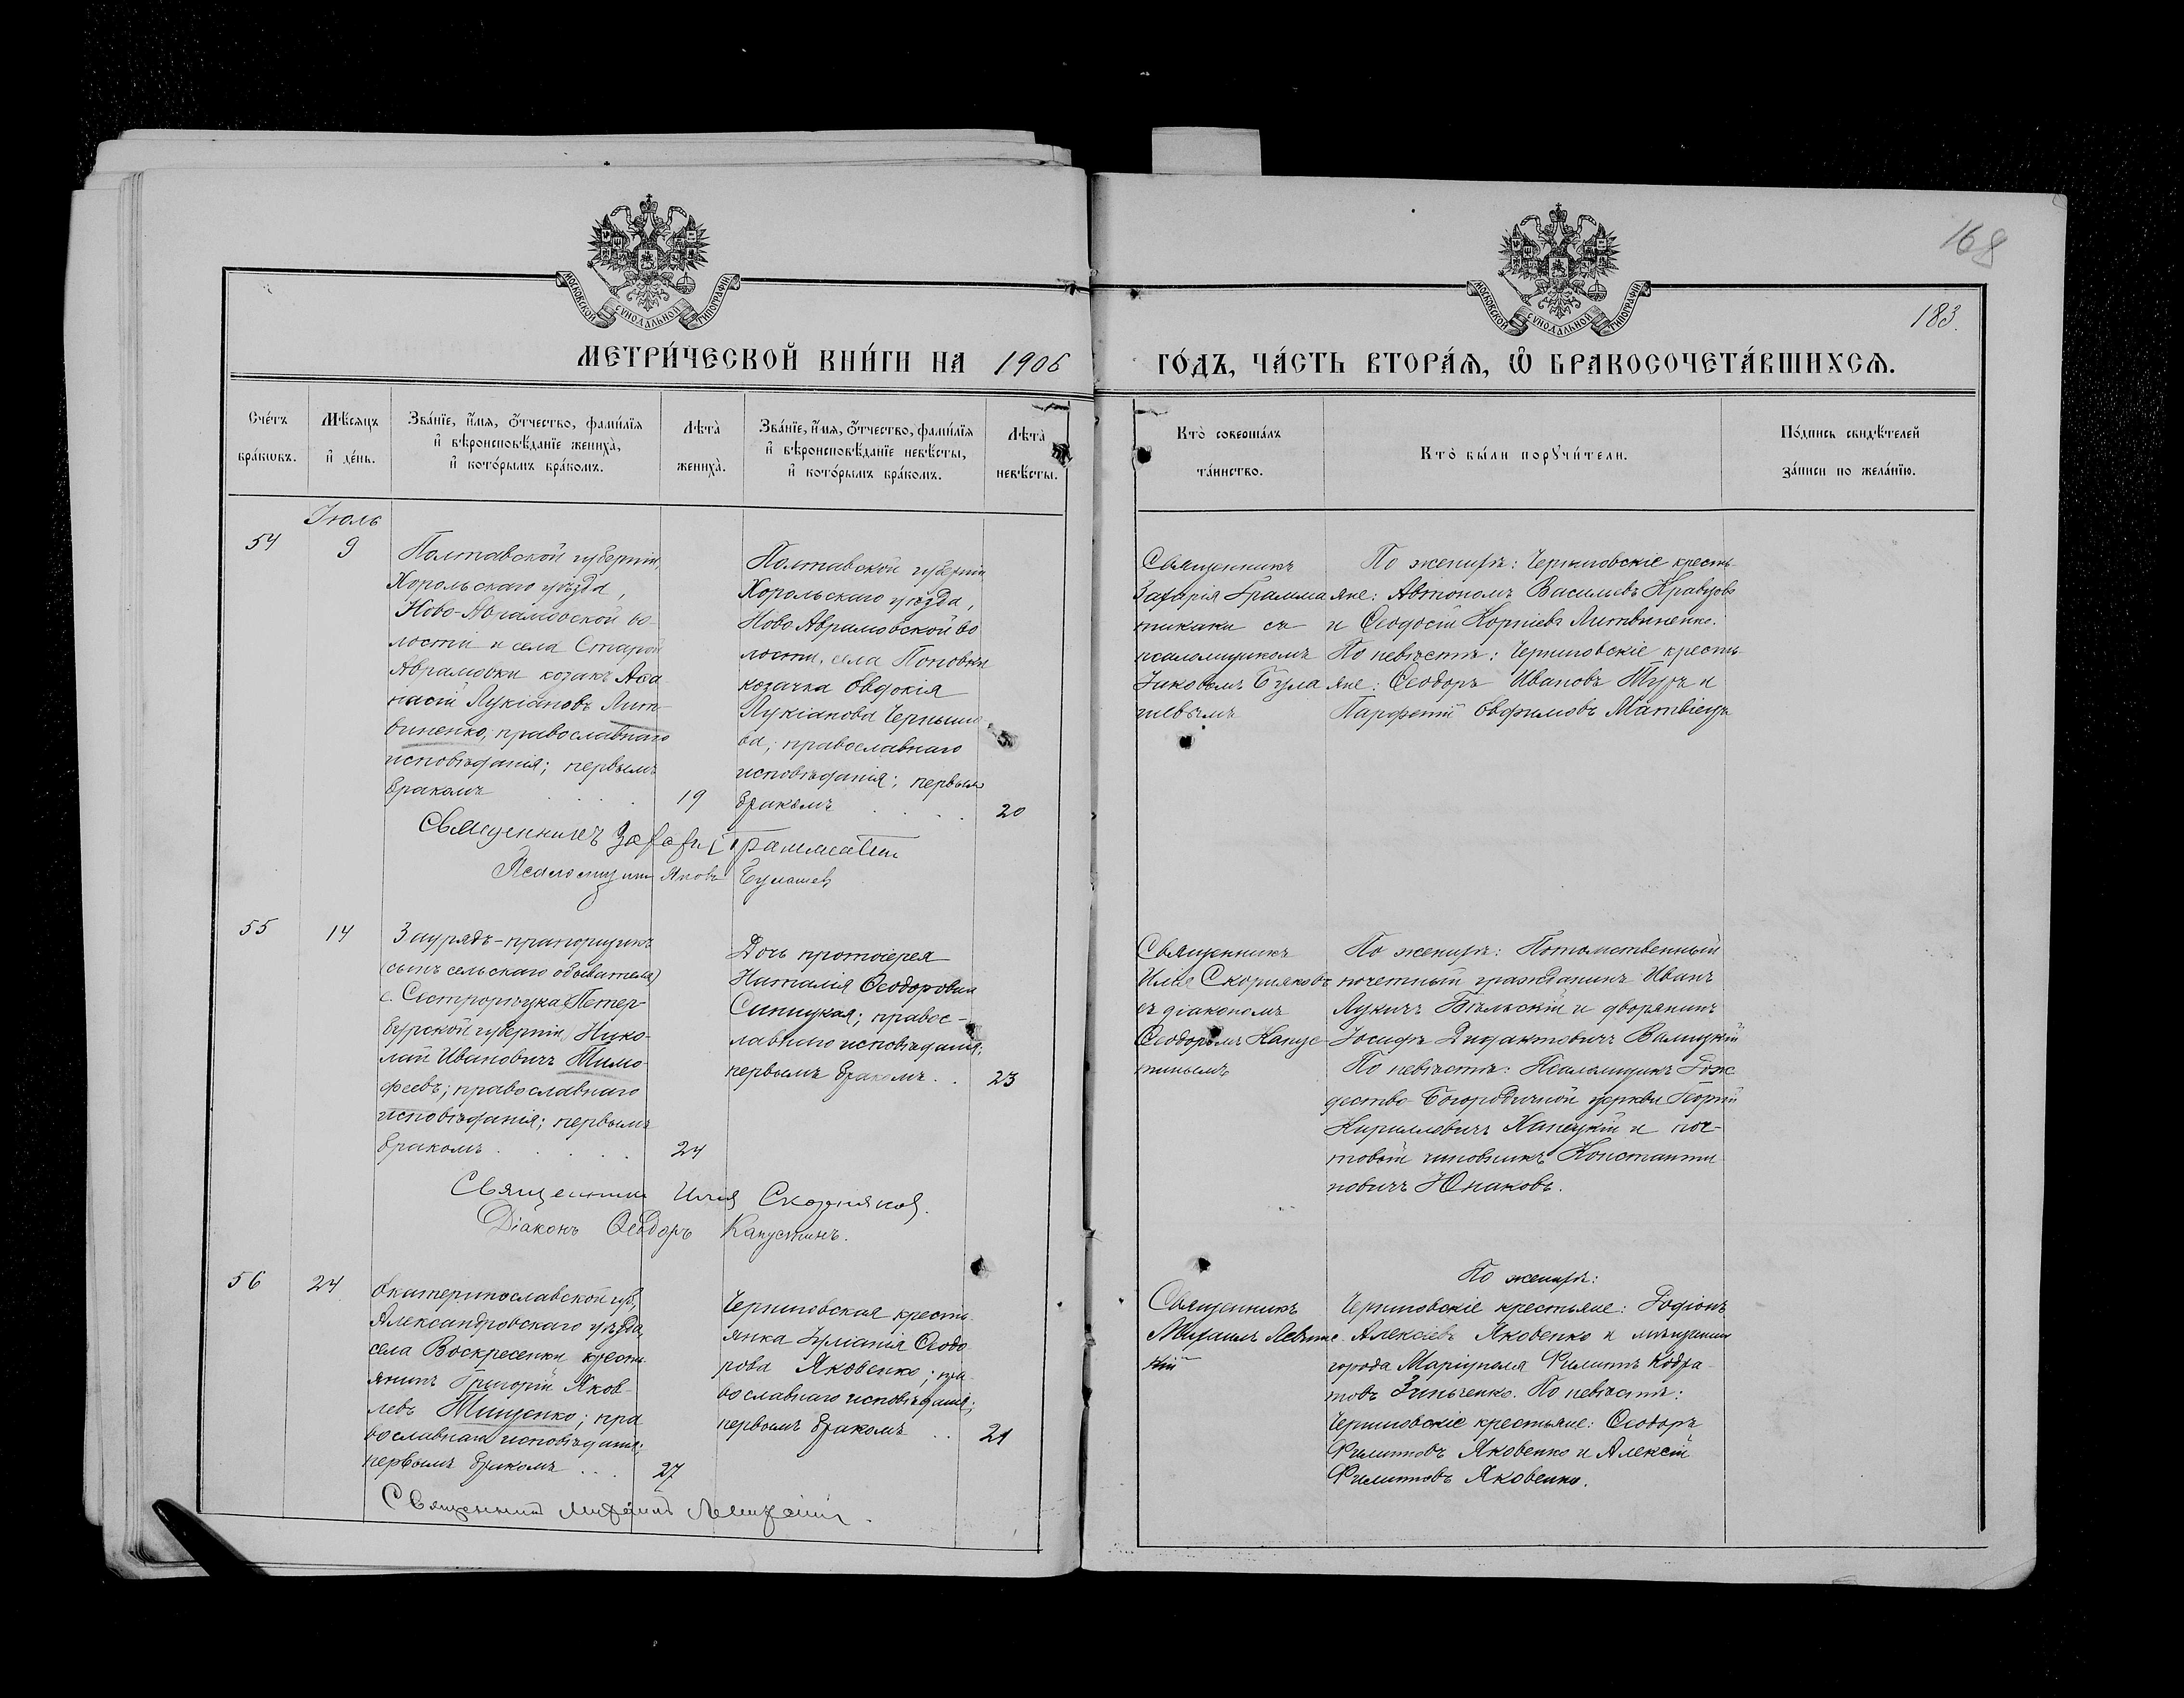 168
183.
МОСКОВСКОЙ СѴНОДАЛЬНОЙ ТИПОГРАФІИ
МОСКОВСКОЙ СѴНОДАЛЬНОЙ ТИПОГРАФІИ
МЕТРИ́ЧЕСКОЙ КНИ́ГИ НА 1906
ГО́ДЪ, ЧА́СТЬ ВТОРА́Ѧ, Ѡ҆ БРАКОСОЧЕТА́ВШИХСѦ.
Сче́тъ
бра́кωвъ.
Мѣ́сяцъ
и҆ де́нь.
Зва́нїе, и҆́мя, ѻ҆́тчество, фами́лїя
и҆ вѣроисповѣ́данїе жениха̀,
и҆ кото́рымъ бра́комъ.
Лѣта̀
жениха̀.
Зва́нїе, и҆́мя, ѻ҆́тчество, фами́лїя
и҆ вѣроисповѣ́данїе невѣ́сты,
и҆ кото́рымъ бра́комъ.
Лѣта̀
невѣ́сты.
Кто̀ соверша́лъ
та́инство.
Кто̀ бы́ли порꙋчи́тели.
По́дпись свидѣ́телей
за́писи по жела́нїю.
Іюль
54
9
Полтавской губерніи,
Хорольскаго уѣзда,
Ново-Аврамовской во-
лости и села Старой
Аврамовки козакъ Афа
насій Лукіановъ Лит-
виненко, православнаго
исповѣданія; первымъ
бракомъ . . . .
19
Полтавской губерніи
Хорольскаго уѣзда,
Ново Аврамовской во
лости, села Поповки
козачка Евдокія
Лукіанова Чернышо
ва; православнаго
исповѣданія; первымъ
бракомъ . . . .
20
Священникъ
Захарія Грамма
тикаки съ
псаломщикомъ
Іаковомъ Була
шевымъ
По женихѣ: Черниговскіе кресть-
яне: Автономъ Василіевъ Кравцовъ
и Ѳеодосій Корніевъ Литвиненко.
По невѣстѣ: Черниговскіе кресть
яне: Ѳеодоръ Ивановъ Туръ и
Парфетій Евфимовъ Матвіецъ
Священникъ Захарія Грамматик
Псаломщикъ Яковъ Булашев
55
14
Заурядъ-прапорщикъ
(сынъ сельскаго обывателя)
с. Сестрорѣцка Петер-
бурской губерніи, Нико-
лай Ивановичъ Тимо-
феевъ; православнаго
исповѣданія; первымъ
бракомъ . . . .
24
Дочь протоіерея
Наталія Ѳеодоровна
Синицкая; правос-
лавнаго исповѣданія;
первымъ бракомъ . .
23
Священникъ
Илія Скорняковъ
съ діакономъ
Ѳеодоромъ Капус-
тинымъ
По женихѣ: Потомственный
почетный гражданинъ Иванъ
Лукичъ Бѣльскій и дворянинъ
Іосифъ Валицкій
По невѣстѣ: Псаломщикъ Рож
дество-Богородичной церкви Георгій
Кирилловичъ и поч-
товый чиновникъ Константи
новичъ Юнаковъ.
Священникъ Илія Скорняков.
Діаконъ Ѳеодоръ Капустинъ.
56
24
Екатеринославской губ,
Александровскаго уѣзда
села Воскресенки кресть
янинъ Григорій Яков-
левъ Тищенко; пра
вославнаго исповѣданія;
первымъ бракомъ . . .
27
Черниговская кресть-
янка Іуліанія Ѳеодо
рова Яковенко; пра-
вославнаго исповѣданія;
первымъ бракомъ . .
21
Священникъ
Михаилъ Левитс
кій
По женихѣ:
Черниговскіе крестьяне: Родіонъ
Алексіевъ Яковенко и мѣщанин
города Маріуполя Филиппъ Кодра-
товъ Зинченко. По невѣстѣ:
Черниговскіе крестьяне: Ѳеодоръ
Филипповъ Яковенко и Алексій
Филипповъ Яковенко.
Священникъ Михаилъ Левитскій.